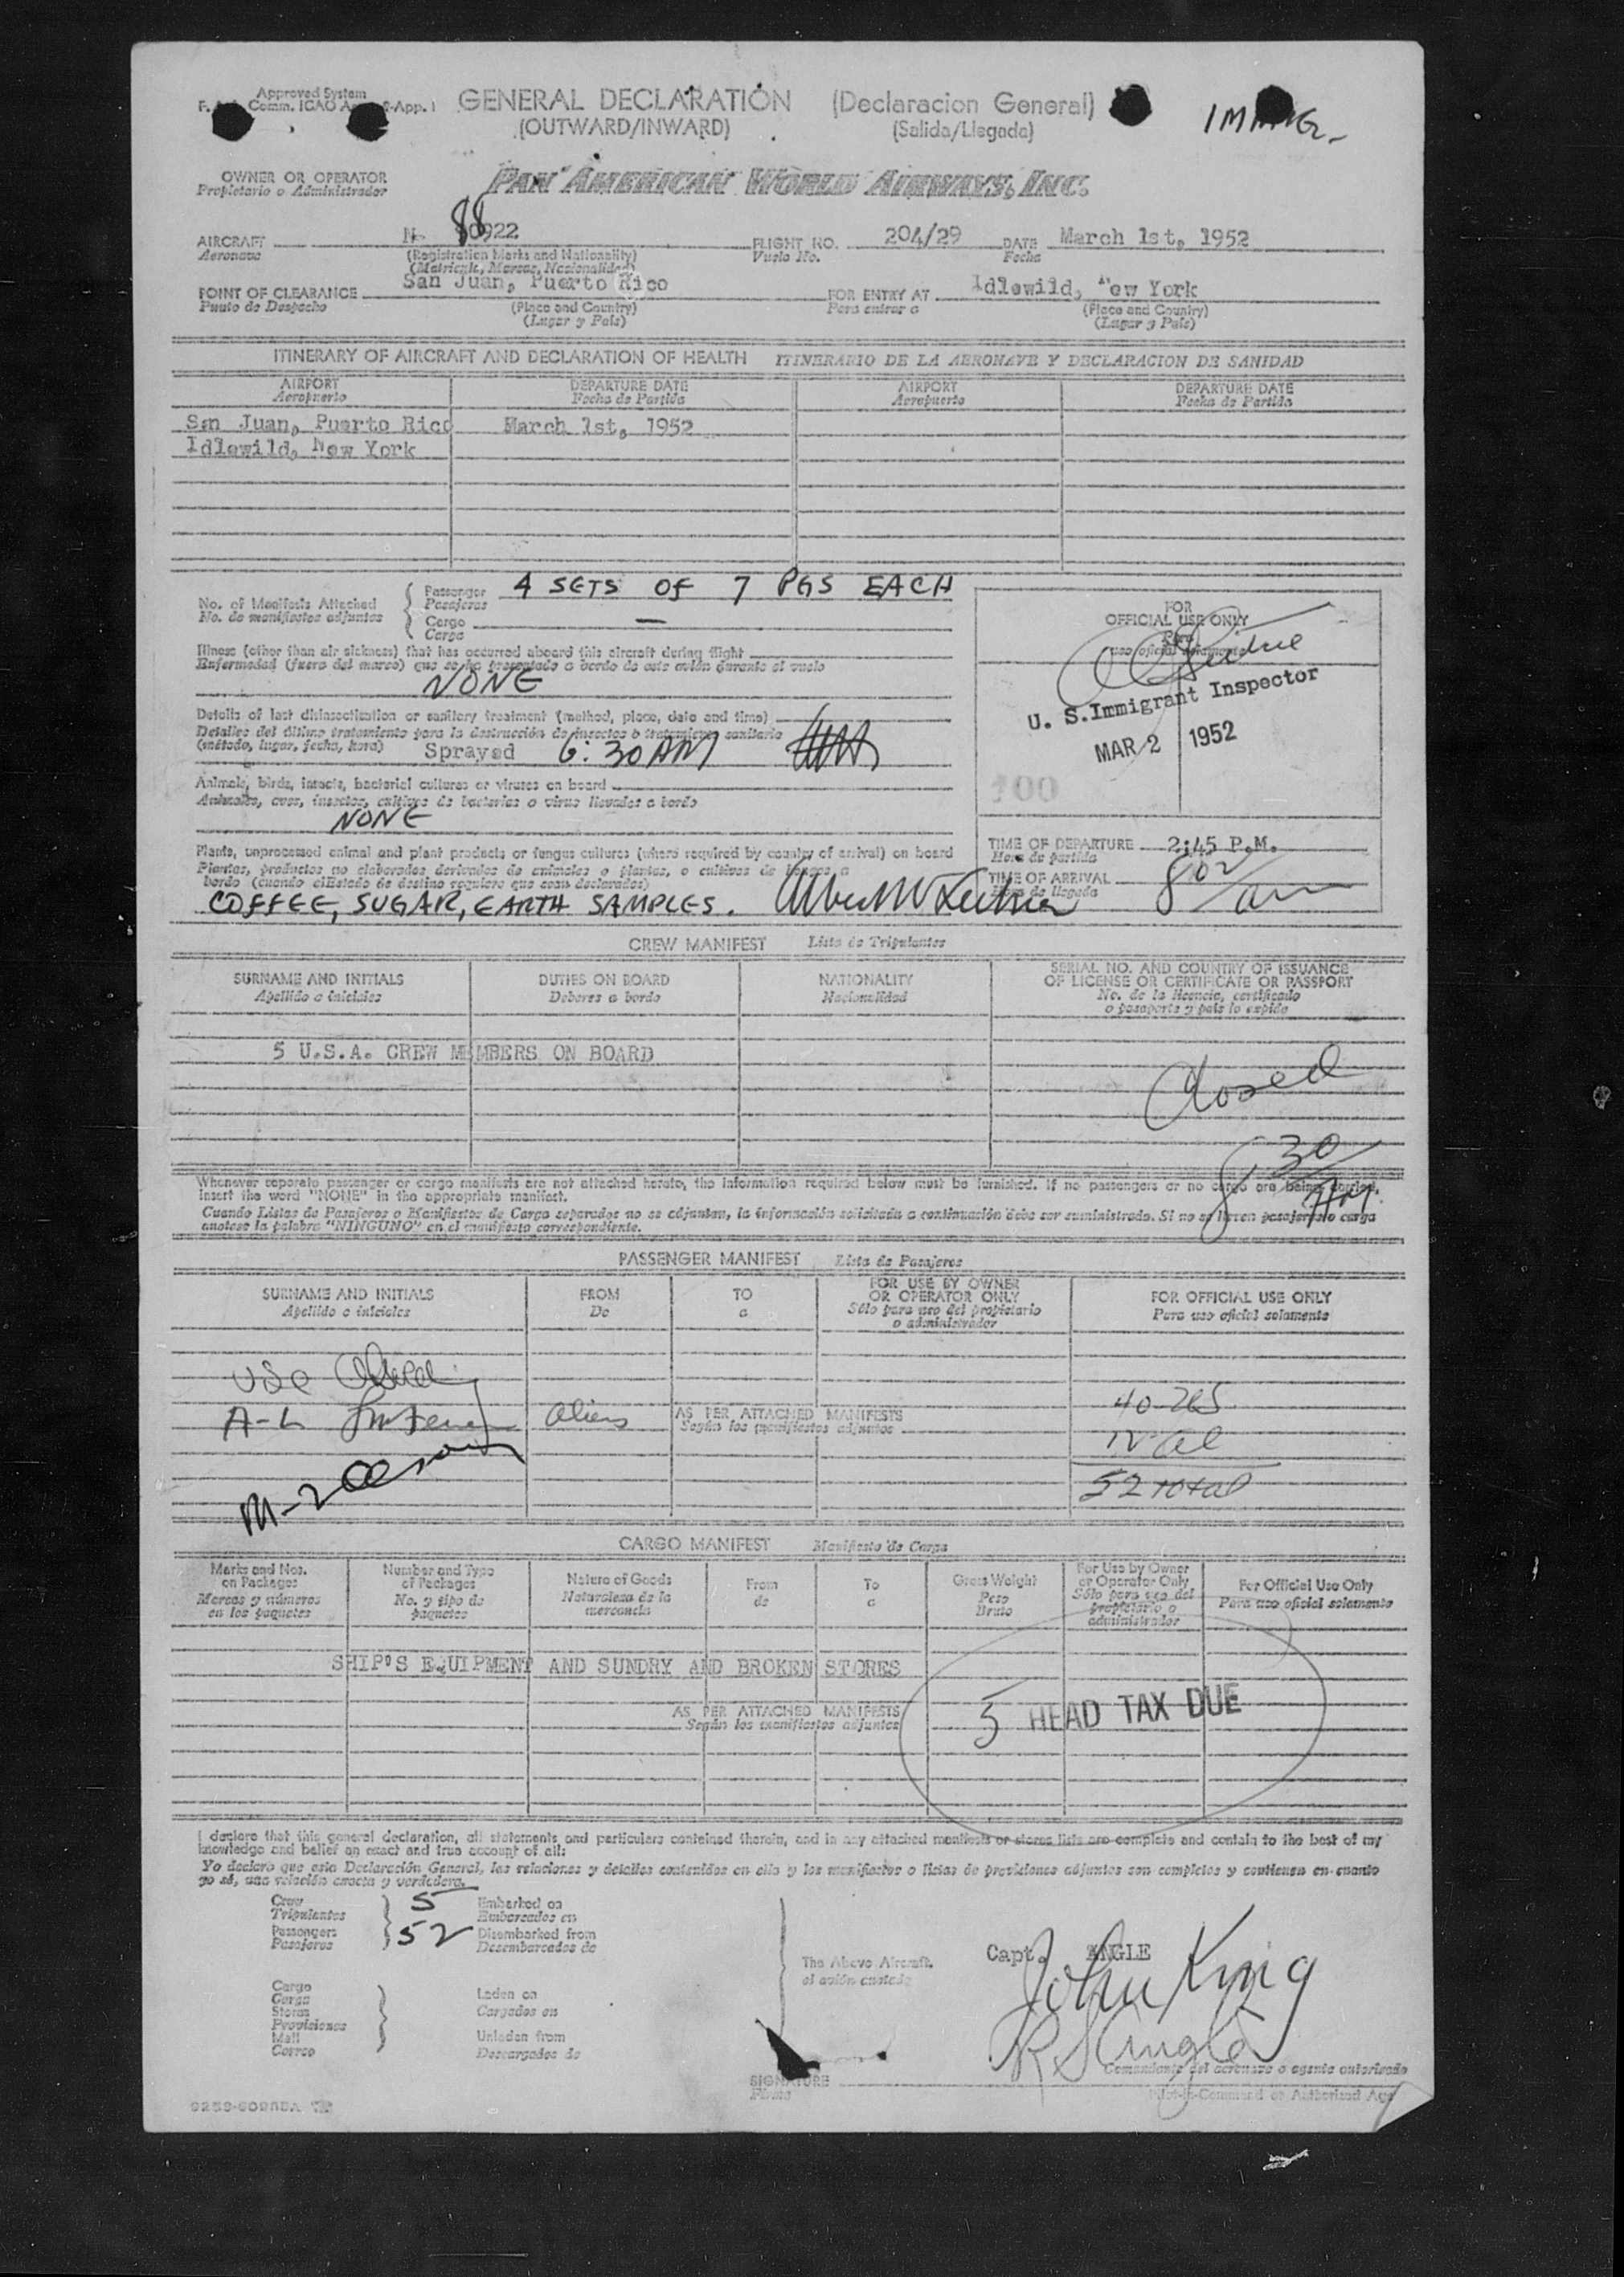 Approved System
GENERAL DECLARATION (Declaracion General)
(OUTWARD/INWARD) (Salida/Llegada)
OWNER OR OPERATOR
Propietario o Administrador
PAN AMERICAN WORLD AIRWAYS, INC.
AIRCRAFT N- 88922 FLIGHT NO. 204/29 DATE March 1st, 1952
Aeronave (Registration Marks and Nationality) Vuelo No. Fecha
(Matricula, Marcas, Nacionalidad)
POINT OF CLEARANCE San Juan, Puerto Rico FOR ENTRY AT Idlewild, New York
Punto de Despacho (Place and Country) Para entrar a (Place and Country)
(Lugar y Pais) (Lugar y Pais)
ITINERARY OF AIRCRAFT AND DECLARATION OF HEALTH ITINERARIO DE LA AERONAVE Y DECLARACION DE SANIDAD
AIRPORT DEPARTURE DATE AIRPORT DEPARTURE DATE
Aeropuerto Fecha de Partida Aeropuerto Fecha de Partida
San Juan, Puerto Rico March 1st, 1952
Idlewild, New York
No. of Manifests Attached Passenger 4 SETS OF 7 PGS EACH
No. de manifiestos adjuntos Pasajeros
Cargo —
Carga
Illness (other than air sickness) that has occurred aboard this aircraft during flight
Enfermedad (fuera del mareo) que se ha presentado a bordo de este avión durante el vuelo
NONE
Details of last disinsectization or sanitary treatment (method, place, date and time)
Detalles del último tratamiento para la destrucción de insectos o tratamiento sanitario
(método, lugar, fecha, hora) Sprayed 6:30 AM
Animals, birds, insects, bacterial cultures or viruses on board
Animales, aves, insectos, cultivos de bacterias o virus llevados a bordo
NONE
Plants, unprocessed animal and plant products or fungus cultures (where required by country of arrival) on board
Plantas, productos no elaborados derivados de animales o plantas, o cultivos de hongos a
bordo (cuando el Estado de destino requiere que sean declarados)
COFFEE, SUGAR, EARTH SAMPLES.
FOR
OFFICIAL USE ONLY
Para
uso oficial solamente
U. S. Immigrant Inspector
MAR 2 1952
100
TIME OF DEPARTURE 2:45 P.M.
Hora de partida
TIME OF ARRIVAL 8 02/am
Hora de llegada
CREW MANIFEST Lista de Tripulantes
SURNAME AND INITIALS DUTIES ON BOARD NATIONALITY SERIAL NO. AND COUNTRY OF ISSUANCE
OF LICENSE OR CERTIFICATE OR PASSPORT
Apellido e iniciales Deberes a bordo Nacionalidad No. de la licencia, certificado
o pasaporte y país lo expide
5 U.S.A. CREW MEMBERS ON BOARD
Closed
8 30/AM
Whenever separate passenger or cargo manifests are not attached hereto, the information required below must be furnished. If no passengers or no cargo are being carried,
insert the word "NONE" in the appropriate manifest.
Cuando Listas de Pasajeros o Manifiestos de Carga separados no se adjuntan, la información solicitada a continuación debe ser suministrada. Si no se llevan pasajeros o carga
anotese la palabra "NINGUNO" en el manifiesto correspondiente.
PASSENGER MANIFEST Lista de Pasajeros
SURNAME AND INITIALS FROM TO FOR USE BY OWNER
OR OPERATOR ONLY FOR OFFICIAL USE ONLY
Apellido e iniciales De a Sólo para uso del propietario
o administrador Para uso oficial solamente
USC
A-L Aliens AS PER ATTACHED MANIFESTS
Según los manifiestos adjuntos
M-2
40
52 total
CARGO MANIFEST Manifiesto de Carga
Marks and Nos.
on Packages
Marcas y números
en los paquetes
Number and Type
of Packages
No. y tipo de
paquetes
Nature of Goods
Naturaleza de la
mercancía
From
de
To
a
Gross Weight
Peso
Bruto
For Use by Owner
or Operator Only
Sólo para uso del
propietario o
administrador
For Official Use Only
Para uso oficial solamente
SHIP'S EQUIPMENT AND SUNDRY AND BROKEN STORES
AS PER ATTACHED MANIFESTS
Según los manifiestos adjuntos
5 HEAD TAX DUE
I declare that this general declaration, all statements and particulars contained therein, and in any attached manifests or stores lists are complete and contain to the best of my
knowledge and belief an exact and true account of all:
Yo declaro que esta Declaración General, las relaciones y detalles contenidos en ella y los manifiestos o listas de provisiones adjuntos son completos y contienen en cuanto
yo sé, una relación exacta y verdadera.
Crew 5 Embarked on
Tripulantes Embarcados en
Passengers 52 Disembarked from
Pasajeros Desembarcados de
Cargo
Carga
Stores
Provisiones
Mail
Correo
Laden on
Cargados en
Unladen from
Descargados de
The Above Aircraft.
el avión
Capt. ANGLE
John King
R S Angle
Comandante del aeronave o agente autorizado
SIGNATURE
Firma
Pilot-in-Command or Authorized Agent